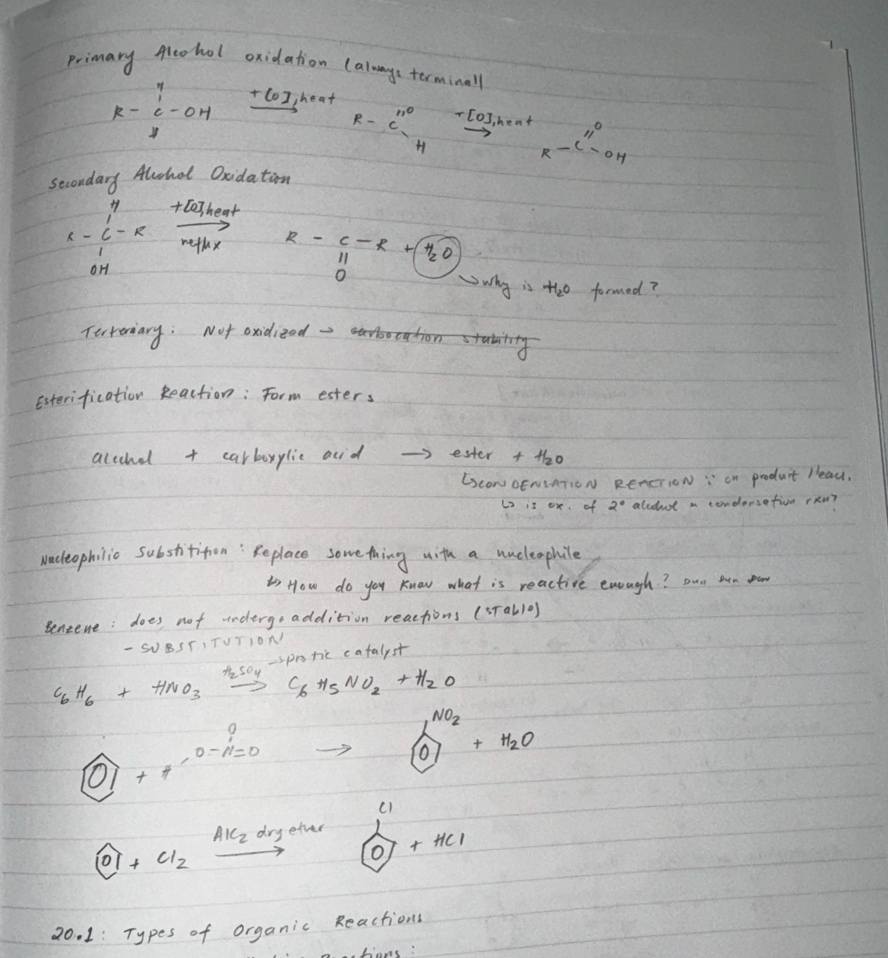 Primary Alcohol oxidation (always terminal)
H
R - C - OH +[O], heat → R - C =O +[O], heat → R - C =O
H H OH
Secondary Alcohol Oxidation
H
R - C - R +[O], heat → R - C - R + H2O
OH reflux O
↳ why is H2O formed?
Terterary: Not oxidized → carbocation stability
Esterification Reaction: Form esters
alcohol + carboxylic acid → ester + H2O
↳ CONDENSATION REACTION ∵ on product react.
↳ is ox. of 2° alcohol a condensation rxn?
Nucleophilic Substitition: Replace something with a nucleophile
↳ How do you know what is reactive enough? Dun Dun Dun
Benzene: does not undergo addition reactions (STABLE)
- SUBSTITUTION
C6H6 + HNO3 H2SO4 → protic catalyst C6H5NO2 + H2O
O NO2
+ H O-N=O → + H2O
Cl
+ Cl2 AlC2 dry ether → + HCl
20.1: Types of Organic Reactions